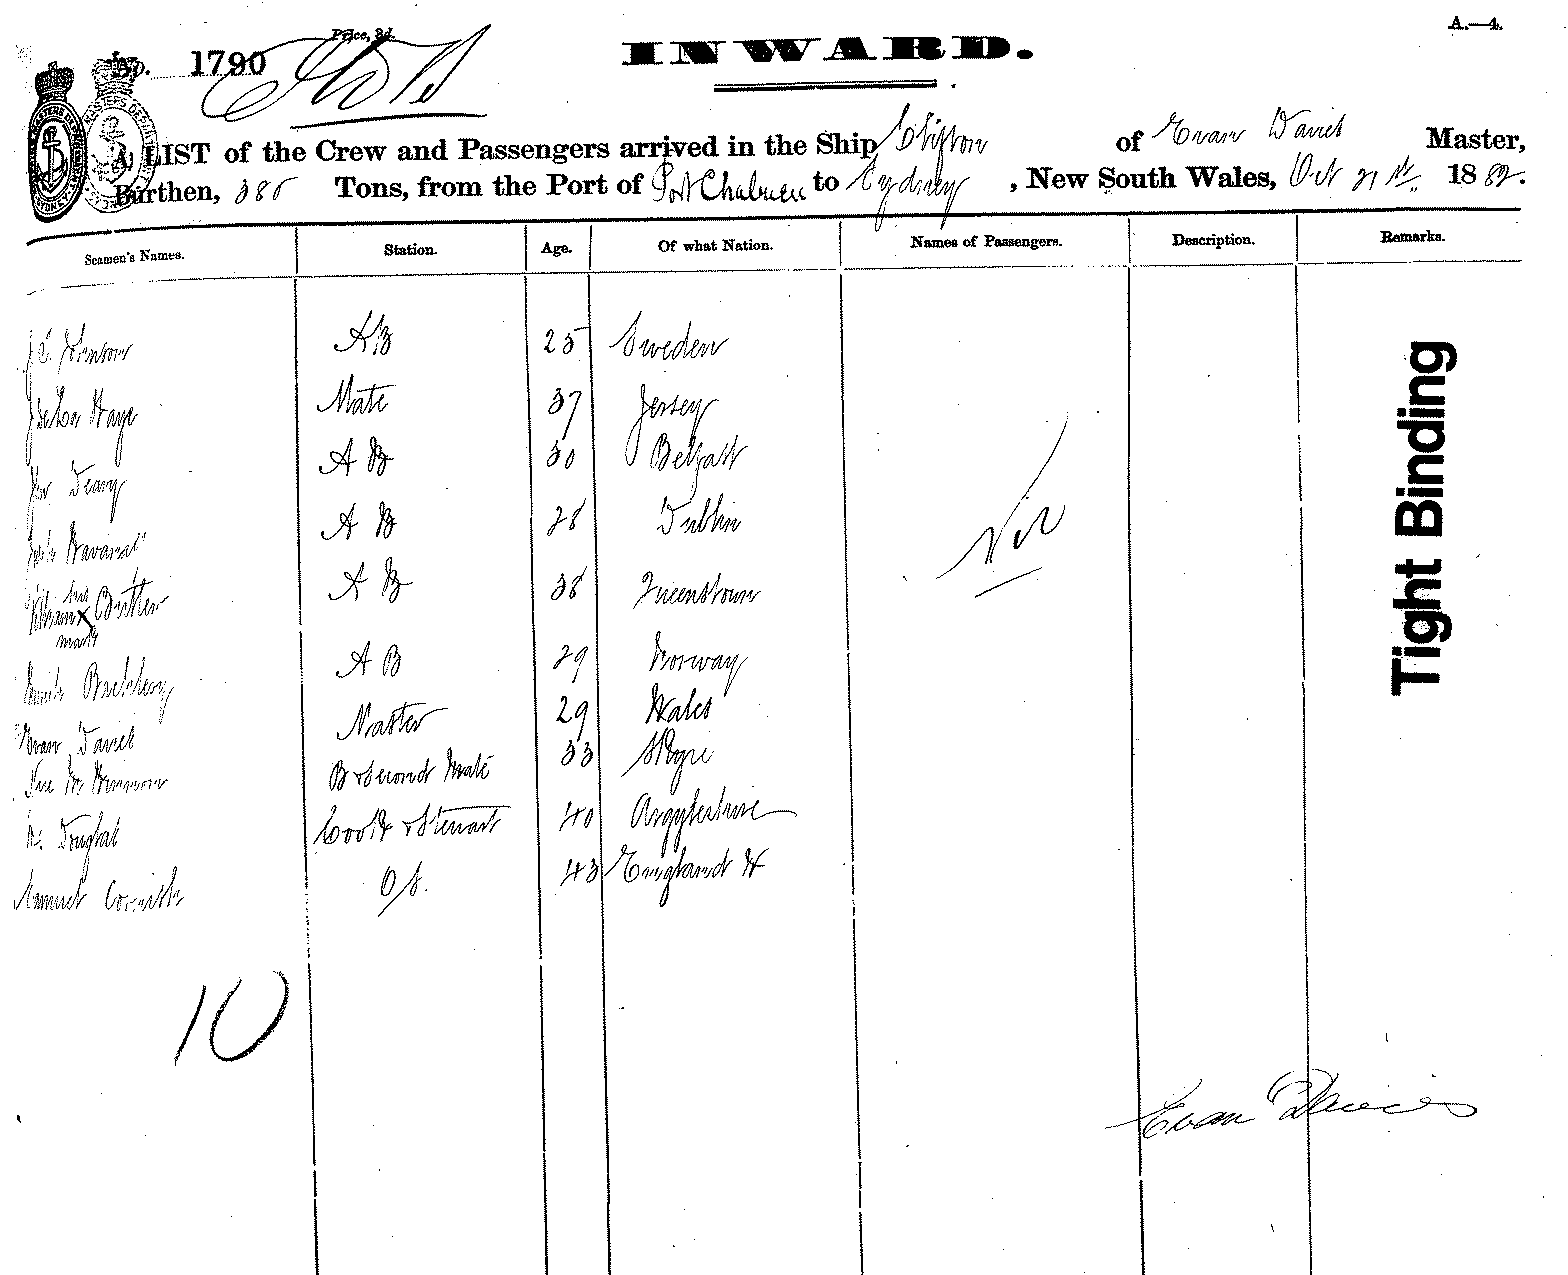 A.—4.
Price, 3d.
No. 1790
INWARD.
A LIST of the Crew and Passengers arrived in the Ship Clifton of Evan Davies Master,
Burthen, 385 Tons, from the Port of Port Chalmers to Sydney, New South Wales, Oct 21st 1882.
Seamen's Names. Station. Age. Of what Nation. Names of Passengers. Description. Remarks.
AB 25 Sweden
De La Haye Mate 37 Jersey
A B 30 Belfast
A B 28 Dublin
William his x mark A B 38 Queenstown
A B 29 Norway
Evan Davies Master 29 Wales
B & Second Mate 33 Skye
Douglas Cook & Steward 40 Argyleshire
Samuel Cornish OS. 43 England
Nil
10
Evan Davies
Tight Binding